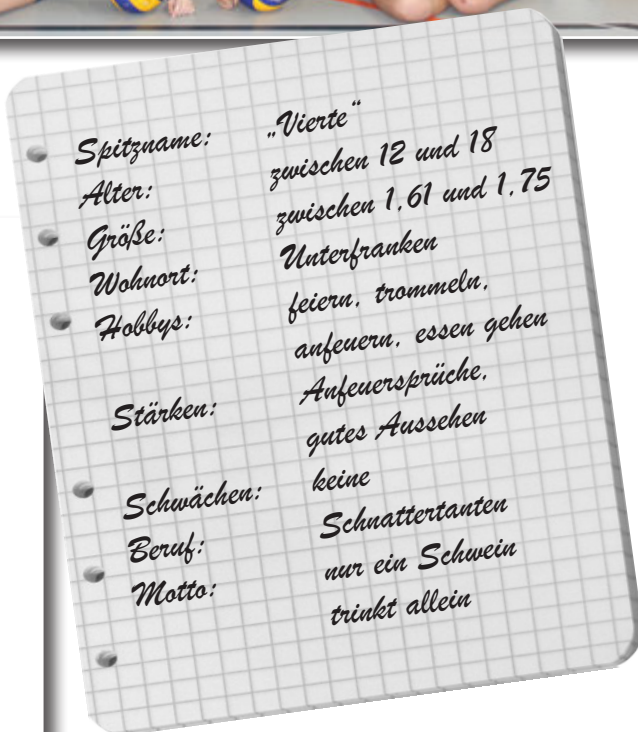 Spitzname: „Vierte“
Alter: zwischen 12 und 18
Größe: zwischen 1,61 und 1,75
Wohnort: Unterfranken
Hobbys: feiern, trommeln,
anfeuern, essen gehen
Stärken: Anfeuersprüche,
gutes Aussehen
Schwächen: keine
Beruf: Schnattertanten
Motto: nur ein Schwein
trinkt allein